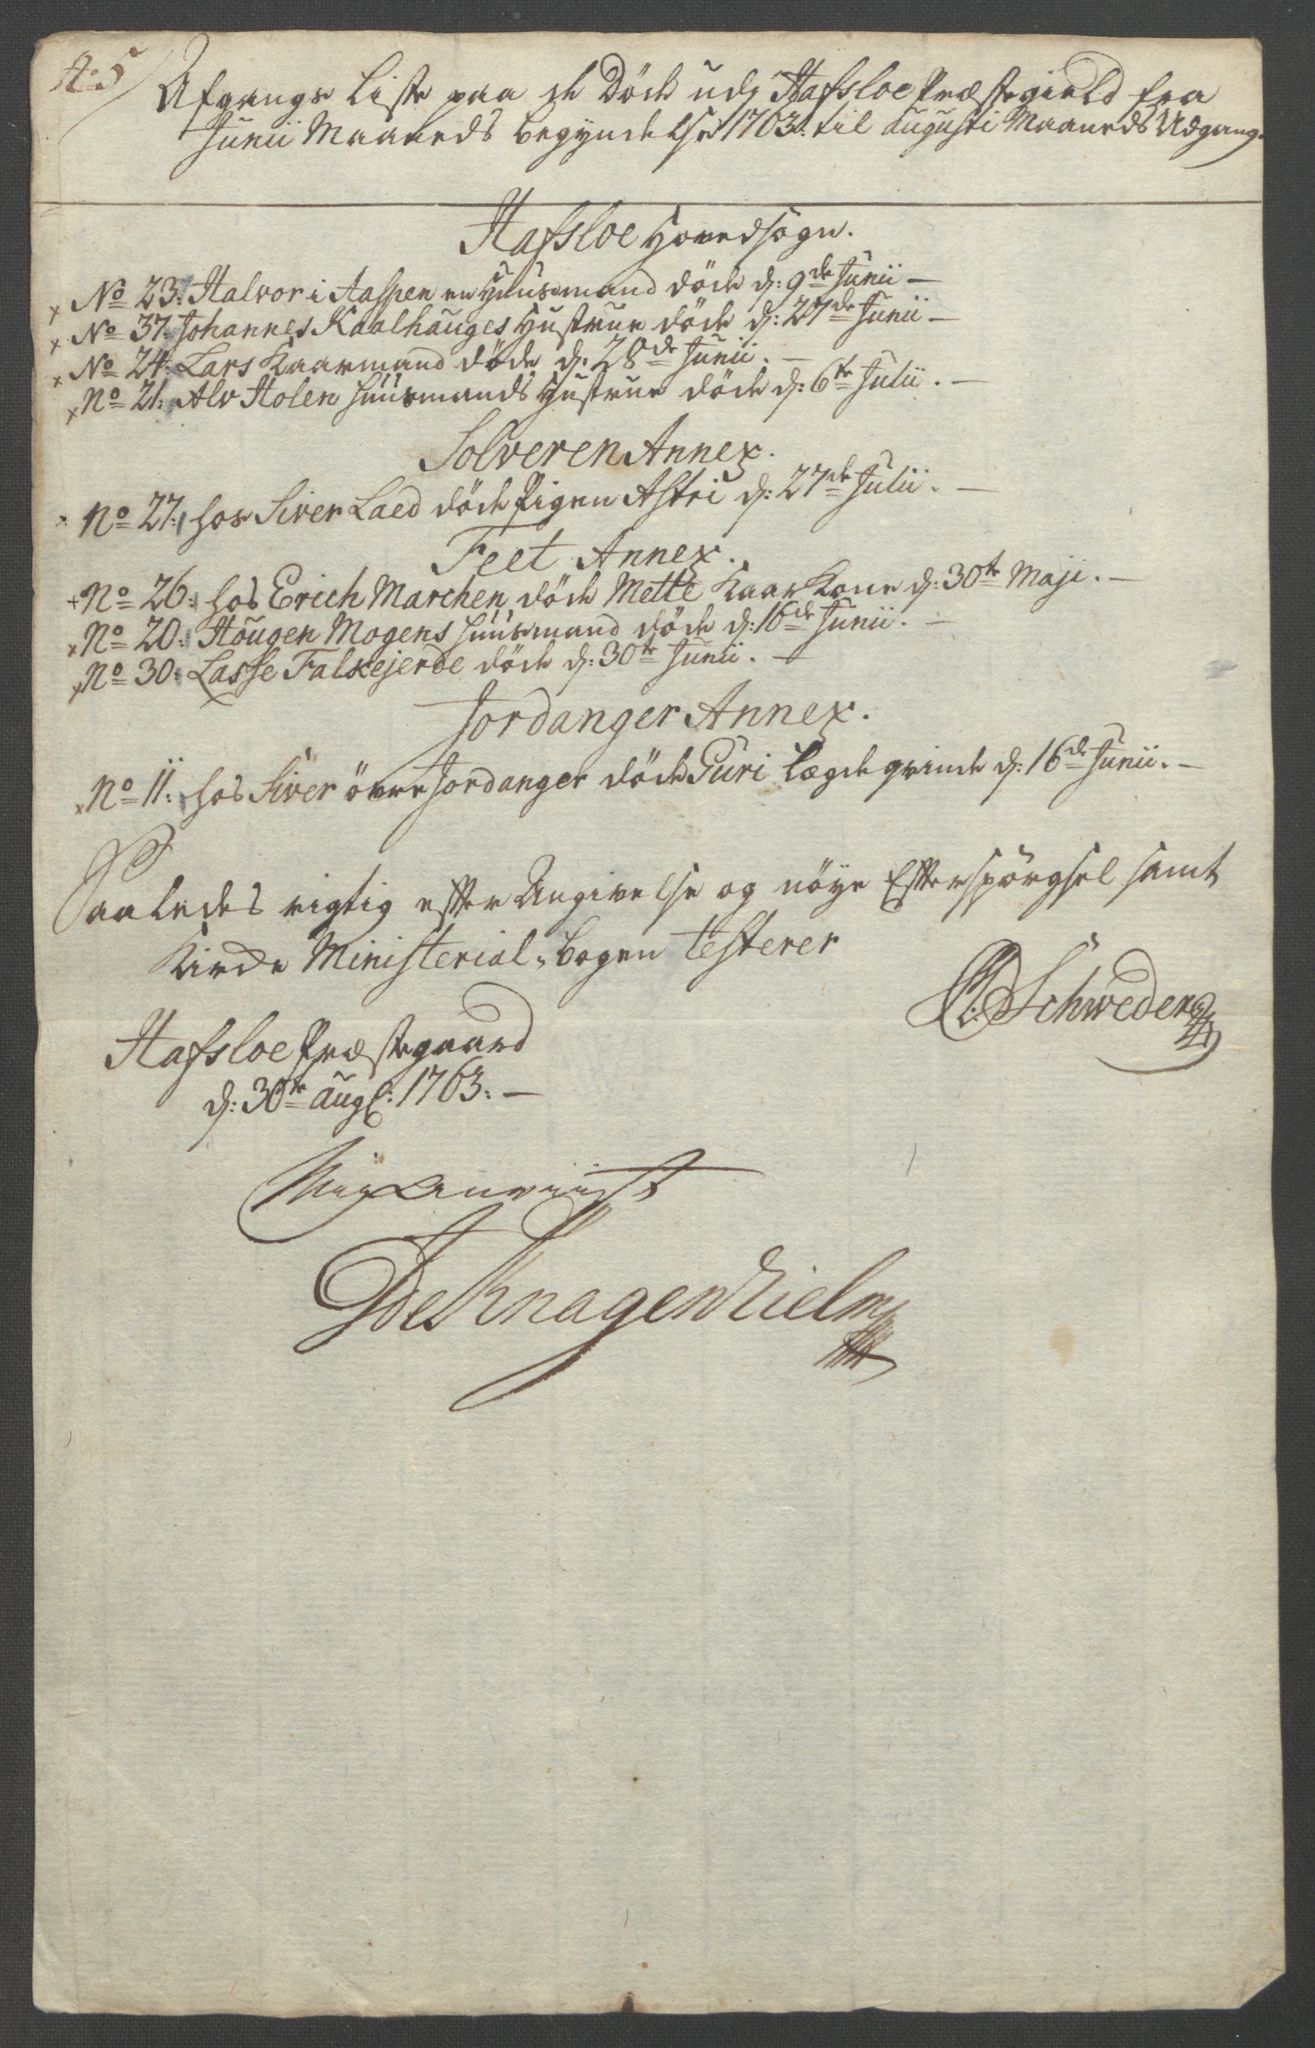 A: 5
Afgangs Liste paa de Döde udj Hafsloe Præstegield fra
Junii Maaneds begyndelse 1763. til Augusti Maaneds Udgang.
Hafsloe Hovedsogn.
x No 23: Halvor i Aaspen en Huusmand döde d: 9de Junii —
x No 37: Johannes Kaalhauges Hustrue döde d: 27de Junii —
x No 24: Lars Kaarmand döde d: 28de Junii. —
x No 21: Alv Holen Huusmands Hustrue döde d: 6te Julii. —
Solveren Annex.
x No 27: hos Siver Laed döde Pigen Astri d: 27de Julii. —
Feet Annex.
+ No 26: hos Erich Marchen döde Mette Kaar Kone d: 30te Maji. —
x No 20: Hougen Mogens Huusmand döde d: 16de Junii. —
x No 30: Lasse Falkejerde döde d: 30te Junii. —
Jordanger Annex.
x No 11: hos Siver övre Jordanger döde Guri Lægdeqvinde d: 16de Junii. —
Saaledes rigtig efter Angivelse og nöye Efterspörgsel samt
Kirke Ministerial-bogen testerer
Schweder
Hafsloe Præstegaard
d: 30te Aug: 1763. —
De Knagenhielm